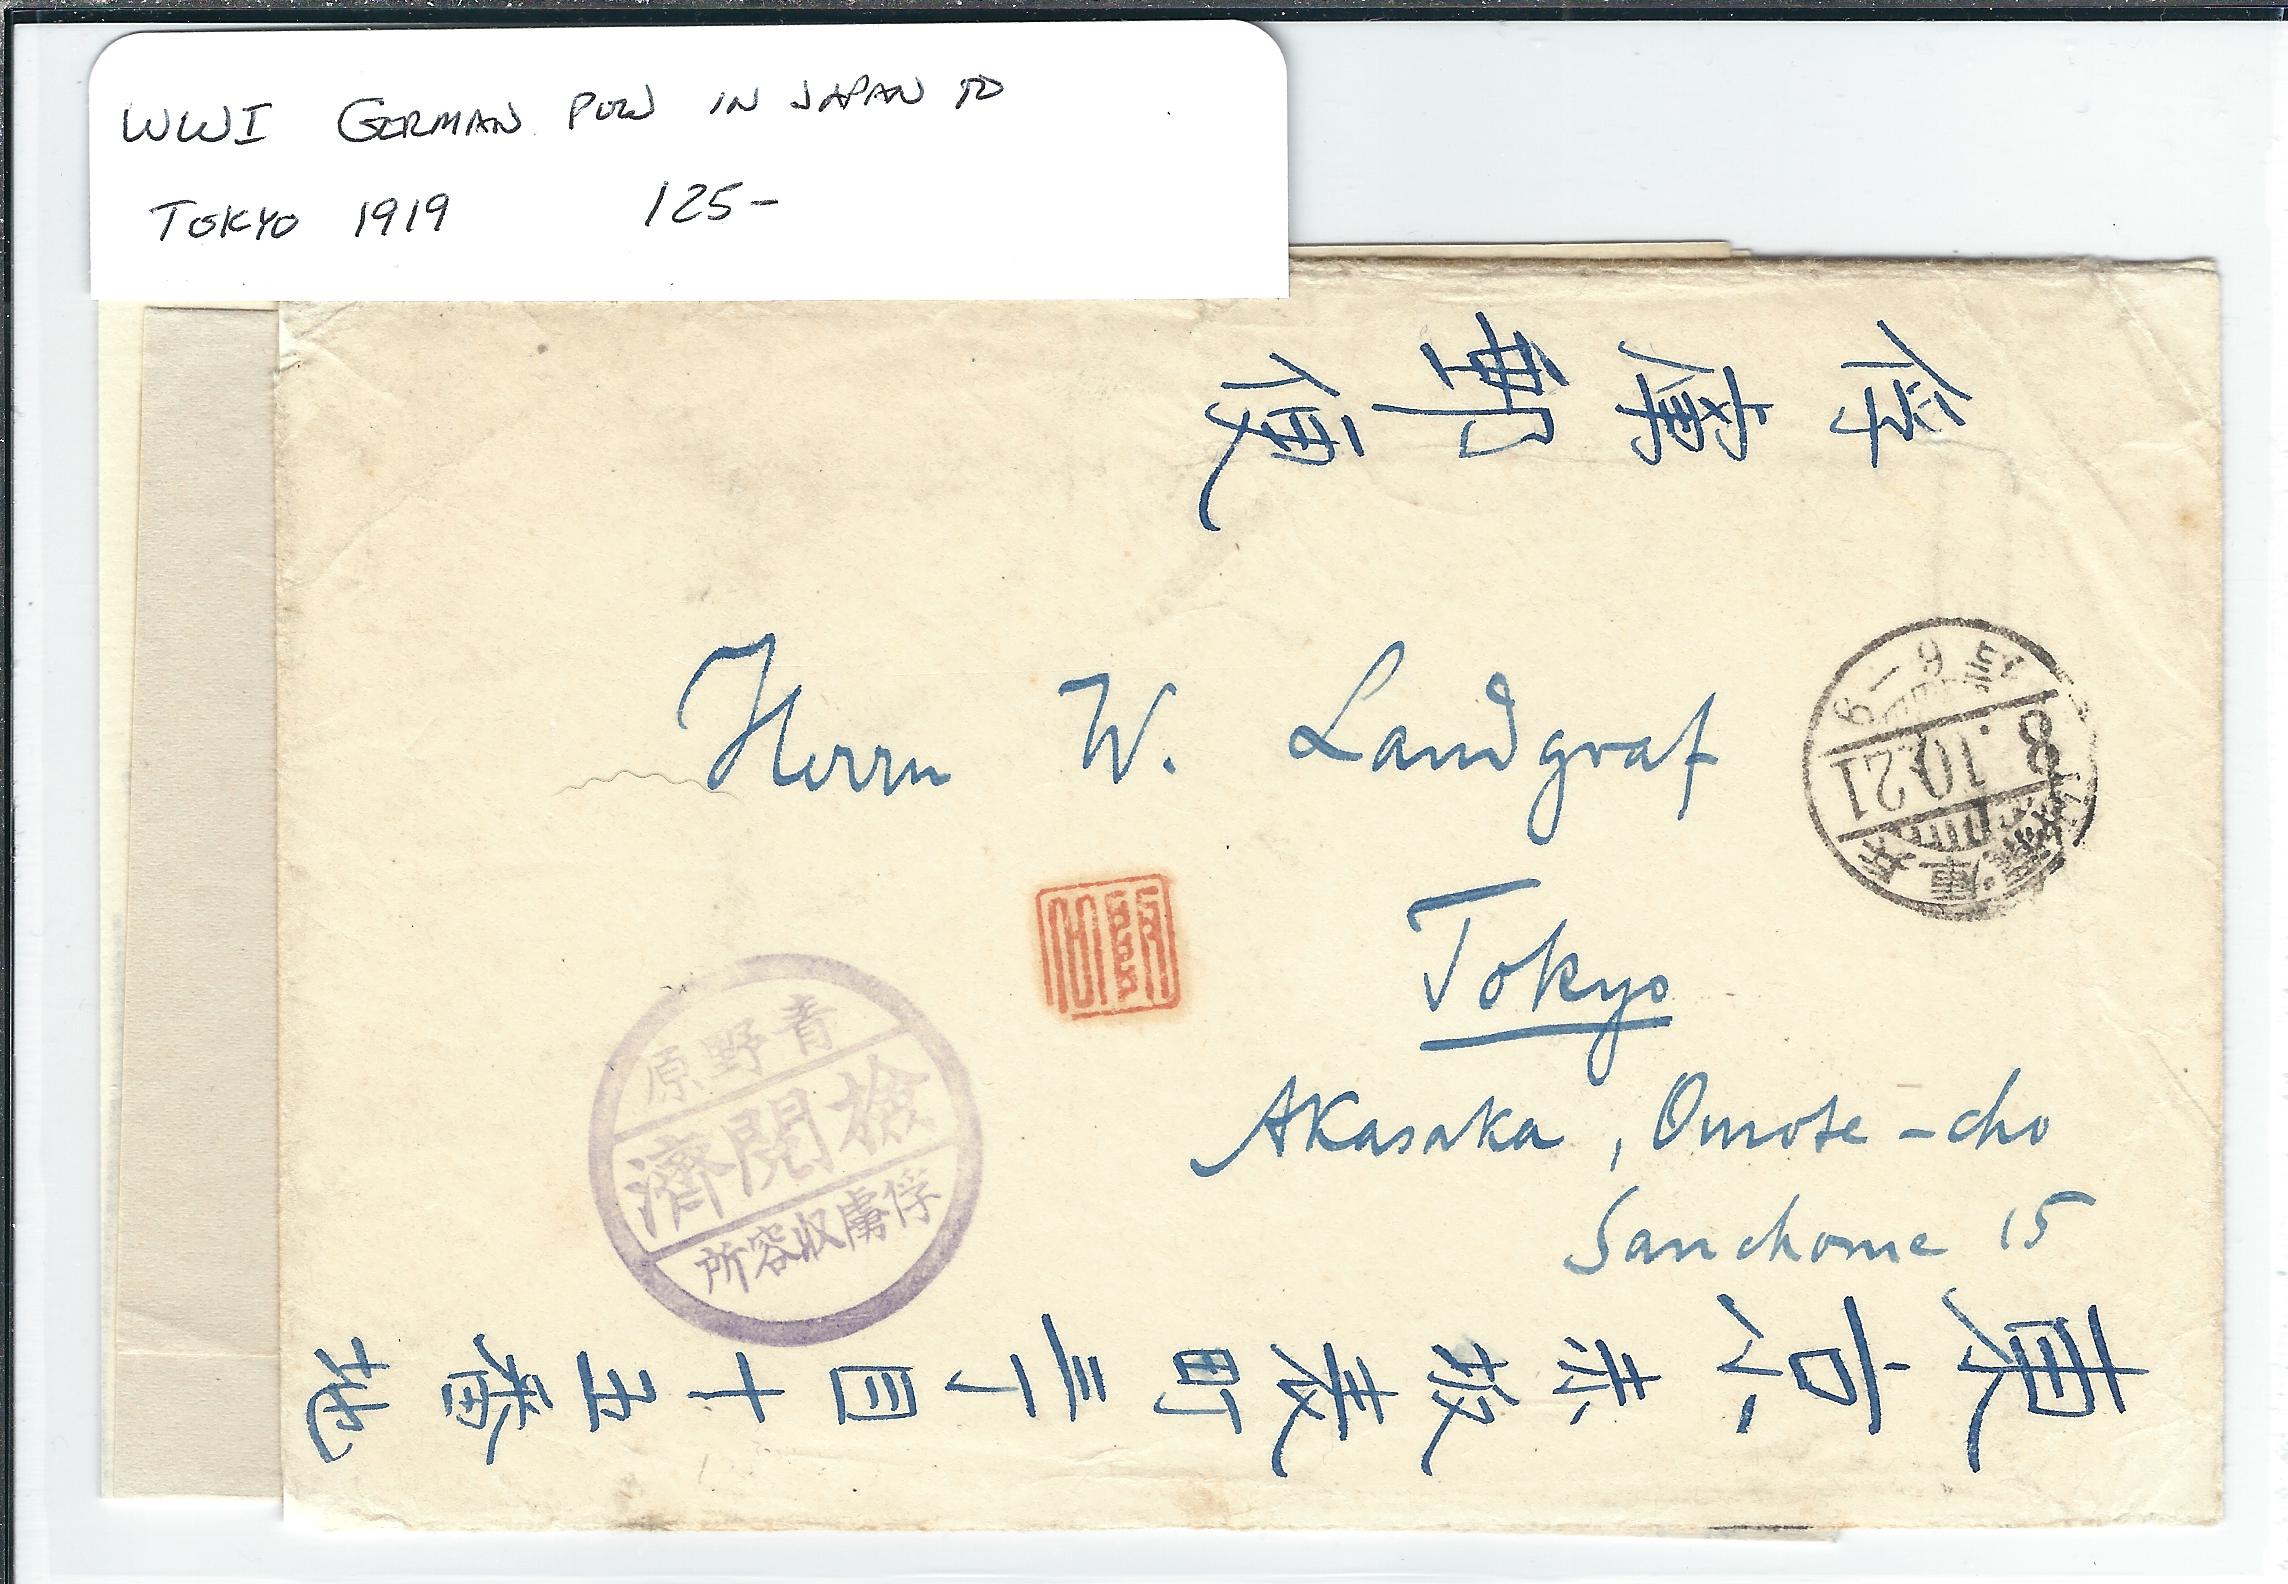 WWI GERMAN POW IN JAPAN TO
TOKYO 1919 125-
俘虜郵便
Herrn W. Landgraf
Tokyo
Akasaka, Omote-cho
Sanchome 15
東京赤坂表町三丁目十五番地
原野青
濟閲檢
所容収虜俘
8.10.21
6-9